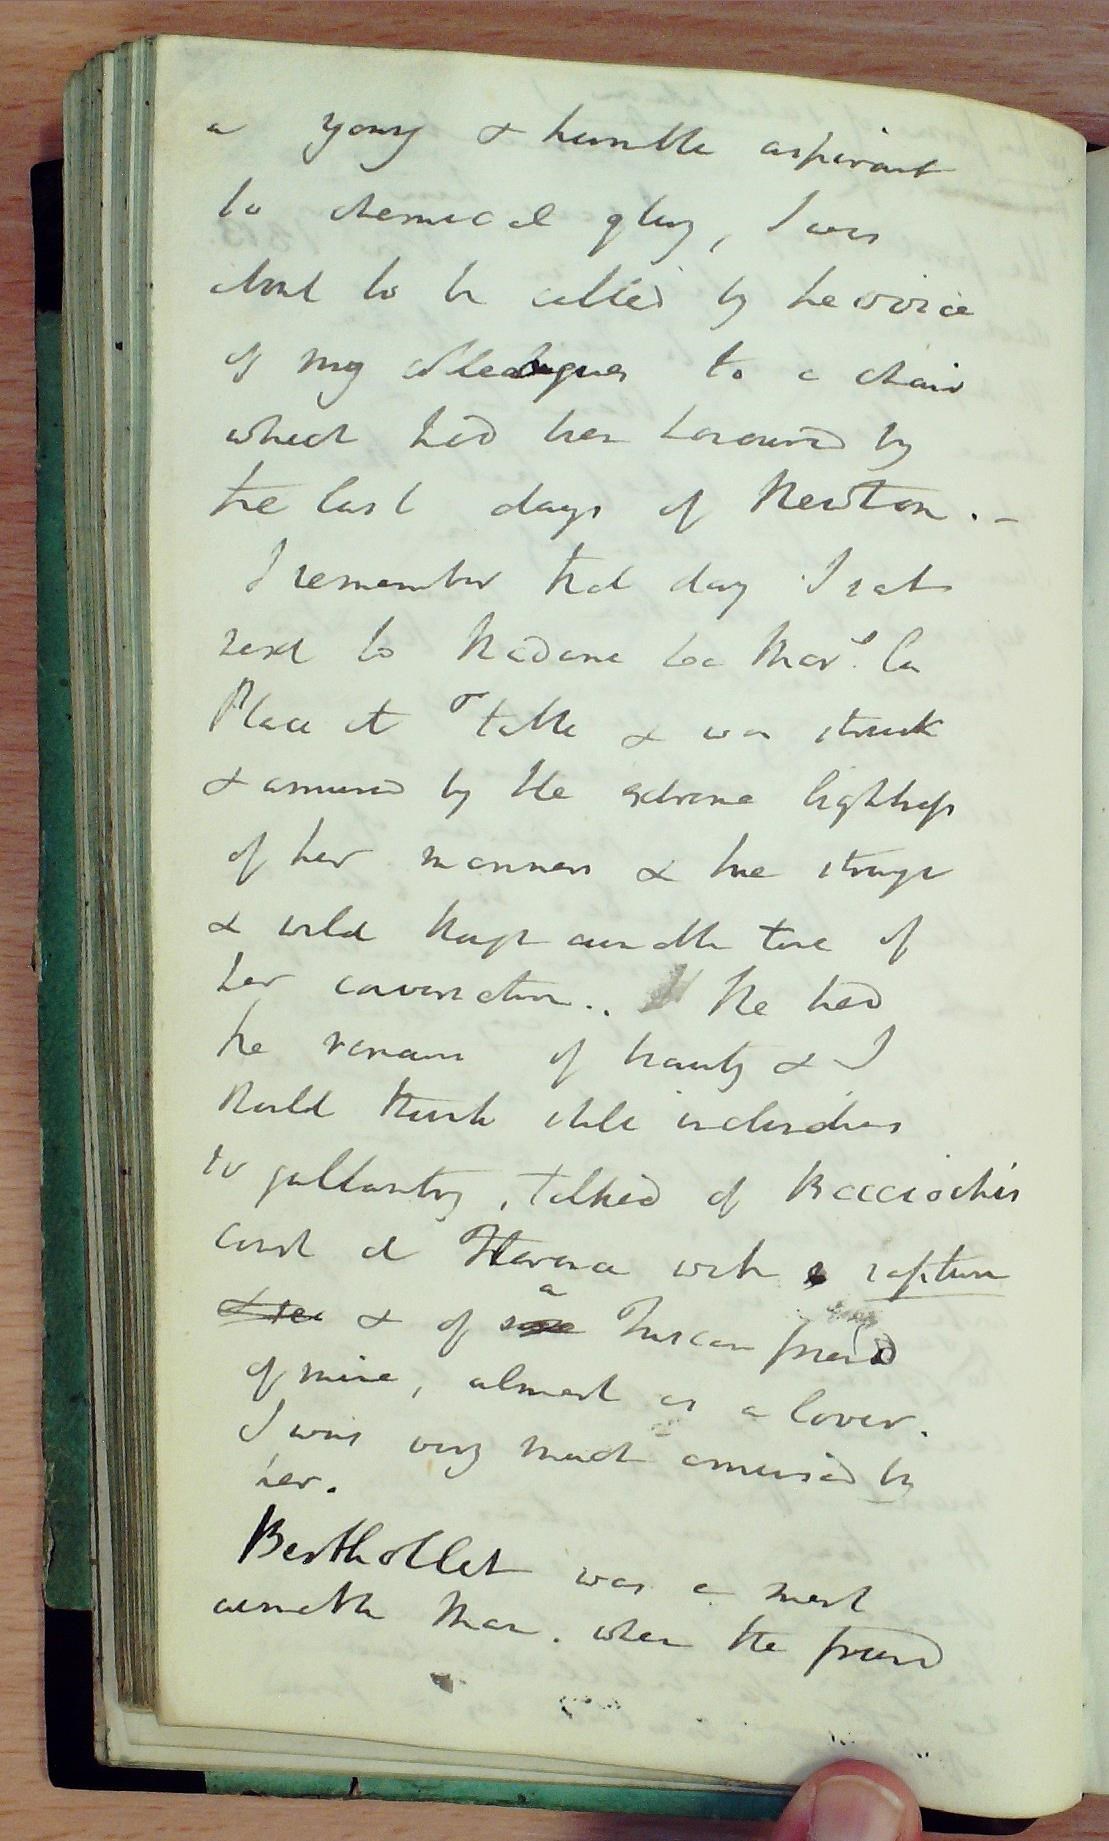 a young & humble aspirant
to chemical glory, I was
about to be called by the voice
of my colleagues to a chair
which had been honoured by
the last days of Newton. –
I remember that day I sat
next to Madame La Marse. La
Place at table & was struck
& amused by the extreme lightness
of her manners & the strange
& wild though amiable tone of
her conversation.. She had
the remains of beauty & I
should think still inclinations
to gallantry, talked of Bacciochis
court at Florence with rapture
& & of a Tuscan friend
of mine, almost as a lover.
I was very much amused by
her.
Berthollet was a most
amiable man. when the friend